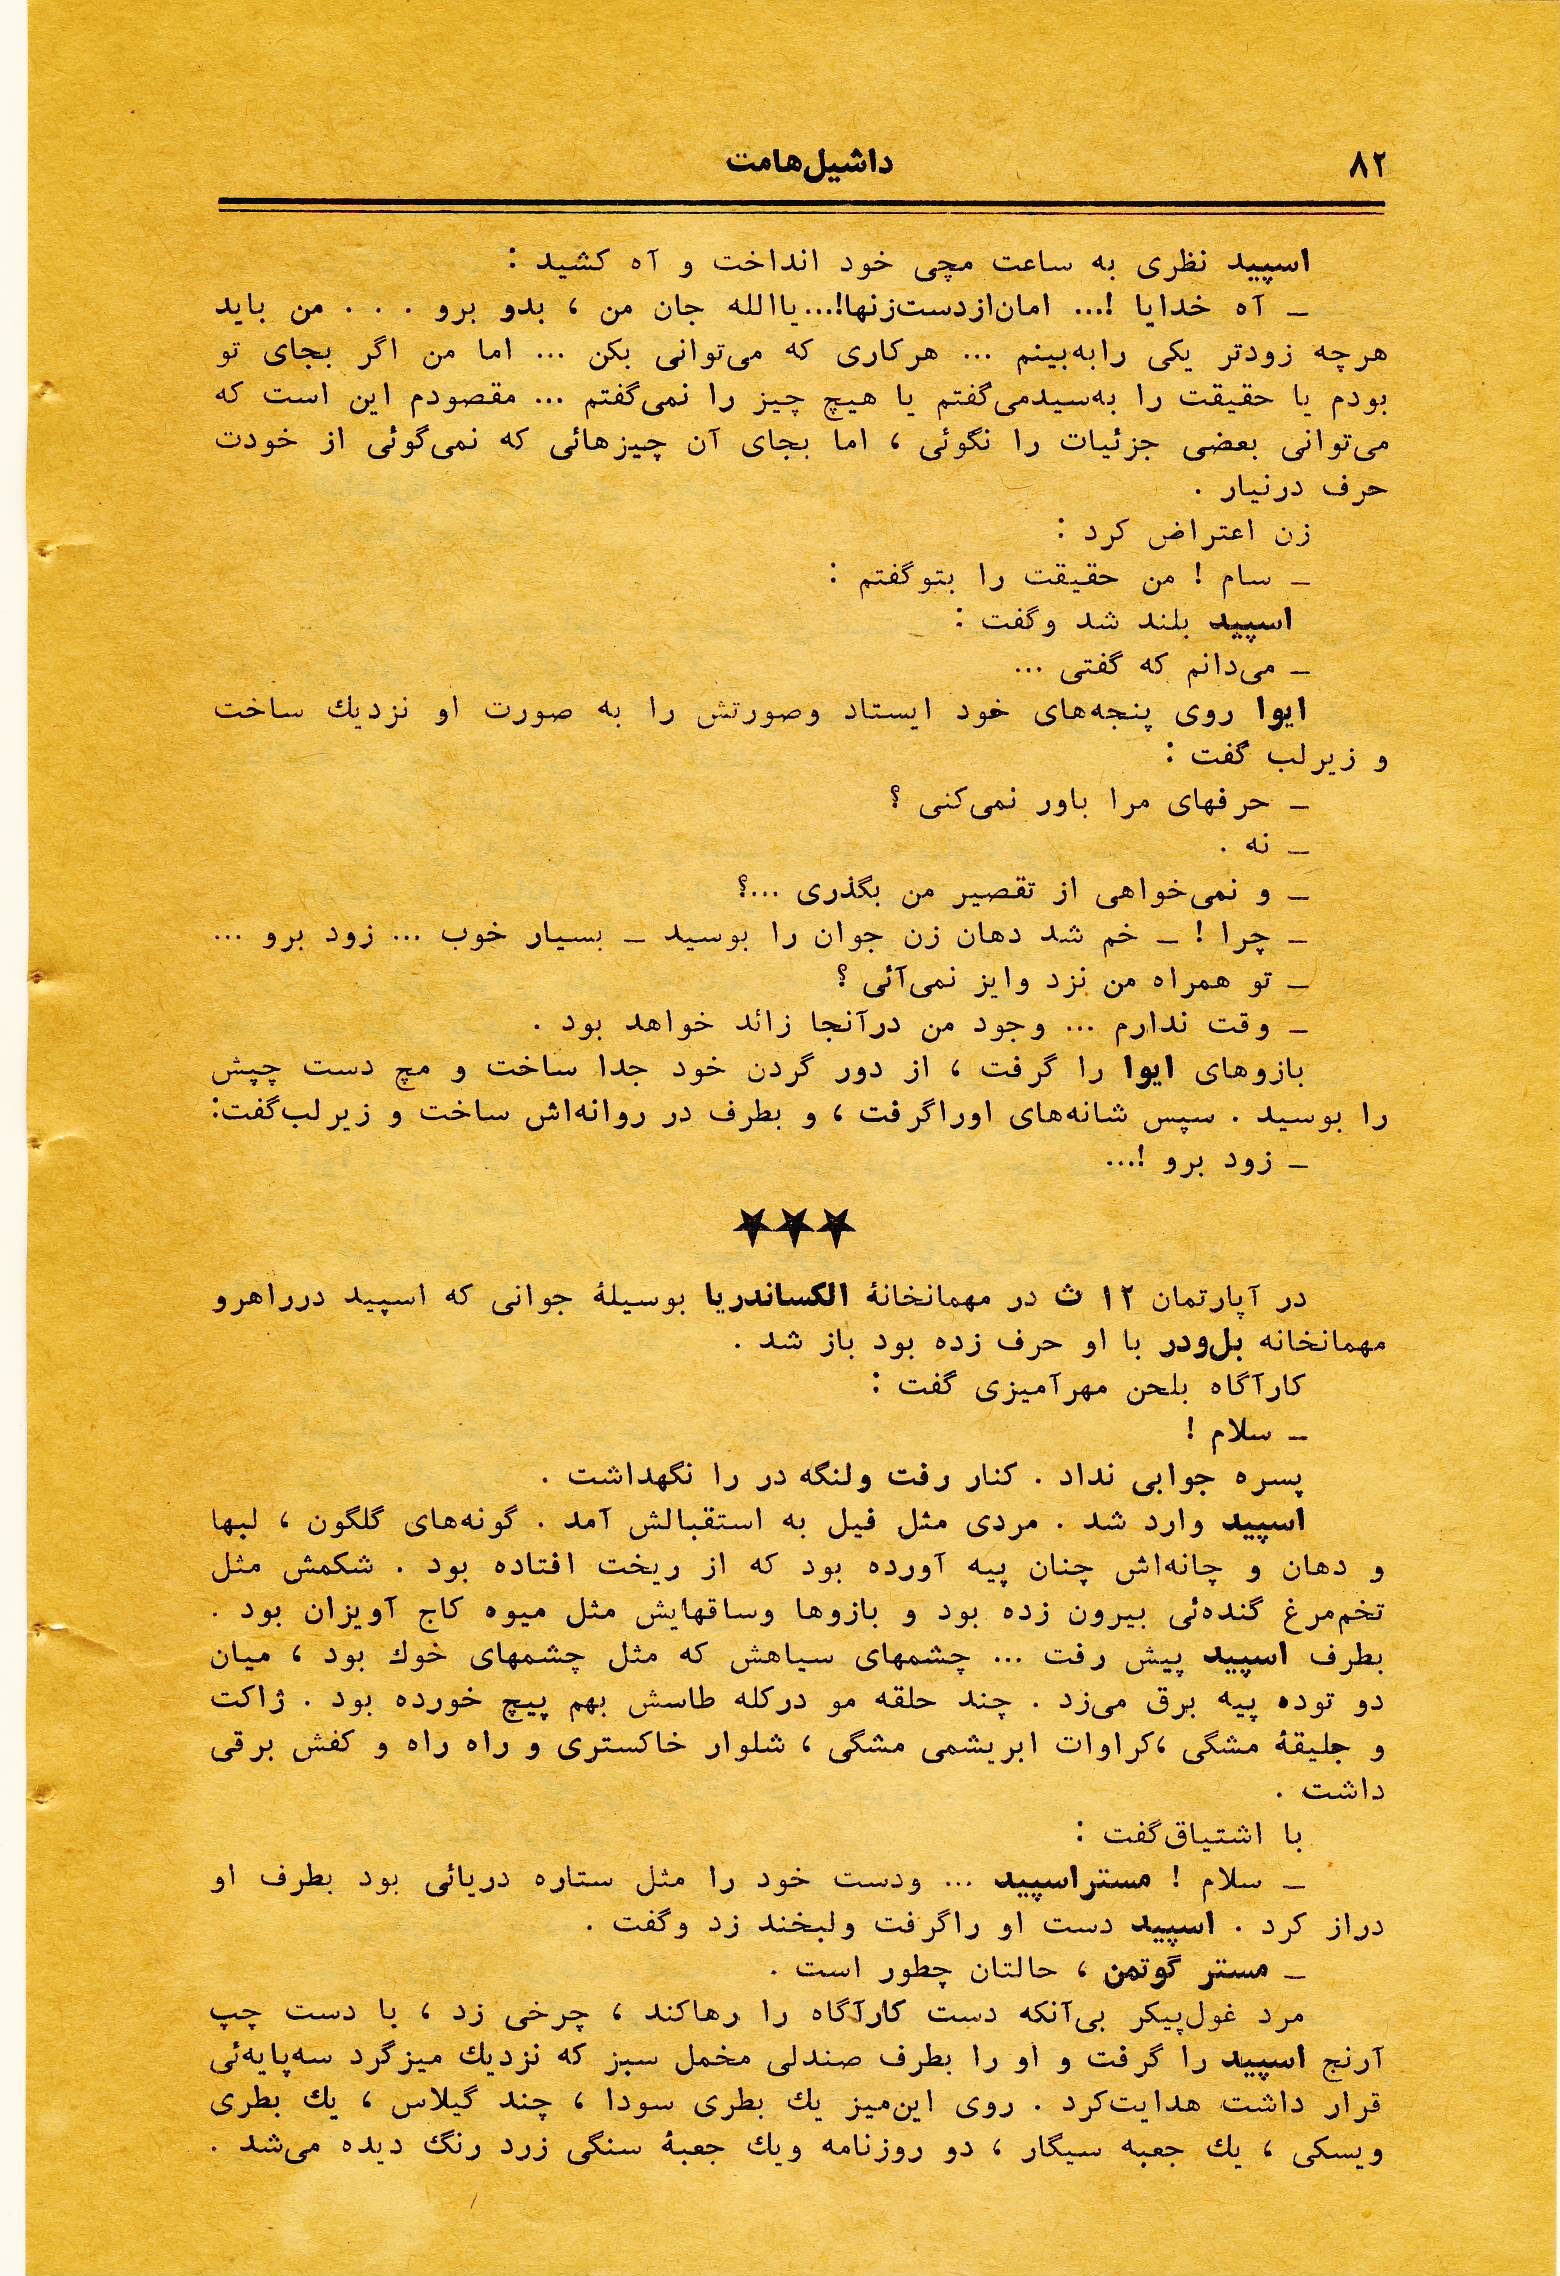 ۸۲
داشیل‌هامت
اسپید نظری به ساعت مچی خود انداخت و آه کشید :
ـ آه خدایا !... امان‌از‌دست‌زنها!...یاالله جان من ، بدو برو . . . من باید
هرچه زودتر یکی رابه‌بینم ... هرکاری که می‌توانی بکن ... اما من اگر بجای تو
بودم یا حقیقت را به‌سیدمی‌گفتم یا هیچ چیز را نمی‌گفتم ... مقصودم این است که
می‌توانی بعضی جزئیات را نگوئی ، اما بجای آن چیزهائی که نمی‌گوئی از خودت
حرف درنیار .
زن اعتراض کرد :
ـ سام ! من حقیقت را بتوگفتم :
اسپید بلند شد وگفت :
ـ می‌دانم که گفتی ...
ایوا روی پنجه‌های خود ایستاد وصورتش را به صورت او نزدیك ساخت
و زیرلب گفت :
ـ حرفهای مرا باور نمی‌کنی ؟
ـ نه .
ـ و نمی‌خواهی از تقصیر من بگذری ...؟
ـ چرا ! ـ خم شد دهان زن جوان را بوسید ـ بسیار خوب ... زود برو ...
ـ تو همراه من نزد وایز نمی‌آئی ؟
ـ وقت ندارم ... وجود من درآنجا زائد خواهد بود .
بازوهای ایوا را گرفت ، از دور گردن خود جدا ساخت و مچ دست چپش
را بوسید . سپس شانه‌های اوراگرفت ، و بطرف در روانه‌اش ساخت و زیرلب‌گفت:
ـ زود برو !...
★★★
در آپارتمان ۱۲ ث در مهمانخانهٔ الکساندریا بوسیلهٔ جوانی که اسپید درراهرو
مهمانخانه بل‌ودر با او حرف زده بود باز شد .
کارآگاه بلحن مهرآمیزی گفت :
ـ سلام !
پسره جوابی نداد . کنار رفت ولنگه در را نگهداشت .
اسپید وارد شد . مردی مثل فیل به استقبالش آمد . گونه‌های گلگون ، لبها
و دهان و چانه‌اش چنان پیه آورده بود که از ریخت افتاده بود . شکمش مثل
تخم‌مرغ گنده‌ئی بیرون زده بود و بازوها وساقهایش مثل میوه کاج آویزان بود .
بطرف اسپید پیش رفت ... چشمهای سیاهش که مثل چشمهای خوك بود ، میان
دو توده پیه برق می‌زد . چند حلقه مو درکله طاسش بهم پیچ خورده بود . ژاکت
و جلیقهٔ مشگی ،کراوات ابریشمی مشگی ، شلوار خاکستری و راه راه و کفش برقی
داشت .
با اشتیاق‌گفت :
ـ سلام ! مستراسپید ... ودست خود را مثل ستاره دریائی بود بطرف او
دراز کرد . اسپید دست او راگرفت ولبخند زد وگفت .
ـ مستر گوتمن ، حالتان چطور است .
مرد غول‌پیکر بی‌آنکه دست کارآگاه را رهاکند ، چرخی زد ، با دست چپ
آرنج اسپید را گرفت و او را بطرف صندلی مخمل سبز که نزدیك میزگرد سه‌پایه‌ئی
قرار داشت هدایت‌کرد . روی این‌میز یك بطری سودا ، چند گیلاس ، یك بطری
ویسکی ، یك جعبه سیگار ، دو روزنامه ویك جعبهٔ سنگی زرد رنگ دیده می‌شد .